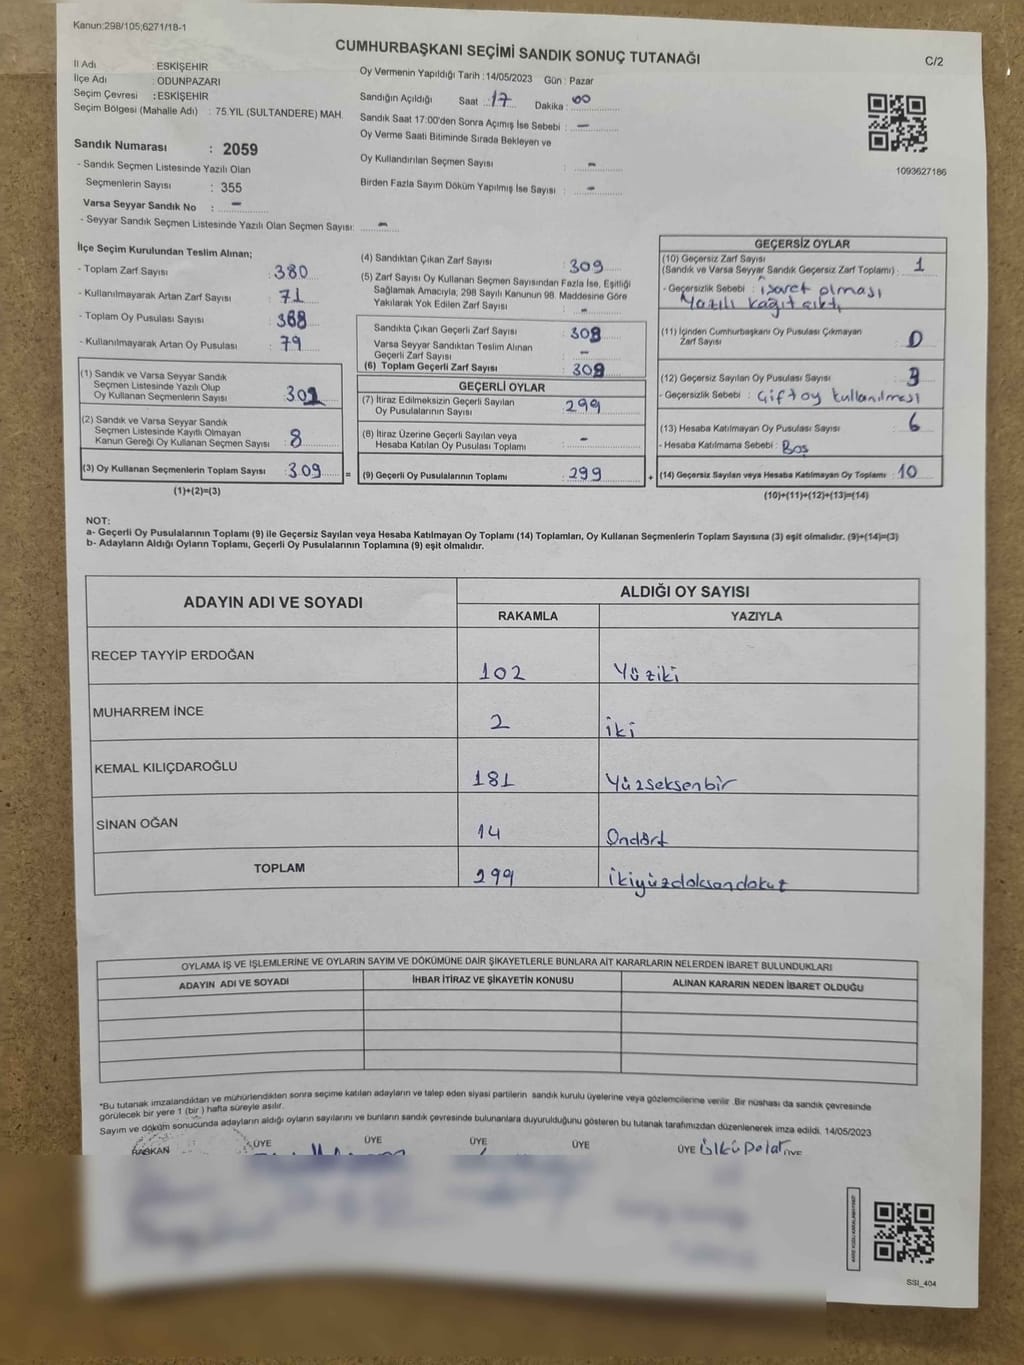 Kanun:298/105;6271/18-1
CUMHURBAŞKANI SEÇİMİ SANDIK SONUÇ TUTANAĞI
C/2
İl Adı : ESKİŞEHİR
İlçe Adı : ODUNPAZARI
Seçim Çevresi : ESKİŞEHİR
Seçim Bölgesi (Mahalle Adı) : 75.YIL (SULTANDERE) MAH.
Sandık Numarası : 2059
- Sandık Seçmen Listesinde Yazılı Olan
Seçmenlerin Sayısı : 355
Varsa Seyyar Sandık No : -
- Seyyar Sandık Seçmen Listesinde Yazılı Olan Seçmen Sayısı: -
Oy Vermenin Yapıldığı Tarih : 14/05/2023 Gün : Pazar
Sandığın Açıldığı Saat : 17 Dakika : 00
Sandık Saat 17:00'den Sonra Açımış İse Sebebi : -
Oy Verme Saati Bitiminde Sırada Bekleyen ve
Oy Kullandırılan Seçmen Sayısı : -
Birden Fazla Sayım Döküm Yapılmış İse Sayısı : -
1093627186
İlçe Seçim Kurulundan Teslim Alınan;
- Toplam Zarf Sayısı : 380
- Kullanılmayarak Artan Zarf Sayısı : 71
- Toplam Oy Pusulası Sayısı : 388
- Kullanılmayarak Artan Oy Pusulası : 79
(1) Sandık ve Varsa Seyyar Sandık
Seçmen Listesinde Yazılı Olup
Oy Kullanan Seçmenlerin Sayısı : 301
(2) Sandık ve Varsa Seyyar Sandık
Seçmen Listesinde Kayıtlı Olmayan
Kanun Gereği Oy Kullanan Seçmen Sayısı : 8
(3) Oy Kullanan Seçmenlerin Toplam Sayısı : 309
(1)+(2)=(3)
=
(4) Sandıktan Çıkan Zarf Sayısı : 309
(5) Zarf Sayısı Oy Kullanan Seçmen Sayısından Fazla İse, Eşitliği
Sağlamak Amacıyla, 298 Sayılı Kanunun 98. Maddesine Göre
Yakılarak Yok Edilen Zarf Sayısı : -
Sandıkta Çıkan Geçerli Zarf Sayısı : 308
Varsa Seyyar Sandıktan Teslim Alınan
Geçerli Zarf Sayısı : -
(6) Toplam Geçerli Zarf Sayısı : 308
GEÇERLİ OYLAR
(7) İtiraz Edilmeksizin Geçerli Sayılan
Oy Pusulalarının Sayısı : 299
(8) İtiraz Üzerine Geçerli Sayılan veya
Hesaba Katılan Oy Pusulası Toplamı : -
(9) Geçerli Oy Pusulalarının Toplamı : 299
+
GEÇERSİZ OYLAR
(10) Geçersiz Zarf Sayısı
(Sandık ve Varsa Seyyar Sandık Geçersiz Zarf Toplamı) : 1
- Geçersizlik Sebebi : işaret olması
Yazılı kağıt çıktı
(11) İçinden Cumhurbaşkanı Oy Pusulası Çıkmayan
Zarf Sayısı : 0
(12) Geçersiz Sayılan Oy Pusulası Sayısı : 3
- Geçersizlik Sebebi : Çift oy kullanılması
(13) Hesaba Katılmayan Oy Pusulası Sayısı : 6
- Hesaba Katılmama Sebebi : Boş
(14) Geçersiz Sayılan veya Hesaba Katılmayan Oy Toplamı : 10
(10)+(11)+(12)+(13)=(14)
NOT:
a- Geçerli Oy Pusulalarının Toplamı (9) ile Geçersiz Sayılan veya Hesaba Katılmayan Oy Toplamı (14) Toplamları, Oy Kullanan Seçmenlerin Toplam Sayısına (3) eşit olmalıdır. (9)+(14)=(3)
b- Adayların Aldığı Oyların Toplamı, Geçerli Oy Pusulalarının Toplamına (9) eşit olmalıdır.
ADAYIN ADI VE SOYADI
ALDIĞI OY SAYISI
RAKAMLA YAZIYLA
RECEP TAYYİP ERDOĞAN 102 Yüziki
MUHARREM İNCE 2 iki
KEMAL KILIÇDAROĞLU 181 Yüzseksenbir
SİNAN OĞAN 14 Ondört
TOPLAM 299 ikiyüzdoksandokuz
OYLAMA İŞ VE İŞLEMLERİNE VE OYLARIN SAYIM VE DÖKÜMÜNE DAİR ŞİKAYETLERLE BUNLARA AİT KARARLARIN NELERDEN İBARET BULUNDUKLARI
ADAYIN ADI VE SOYADI İHBAR İTİRAZ VE ŞİKAYETİN KONUSU ALINAN KARARIN NEDEN İBARET OLDUĞU
*Bu tutanak imzalandıktan ve mühürlendikten sonra seçime katılan adayların ve talep eden siyasi partilerin sandık kurulu üyelerine veya gözlemcilerine verilir. Bir nüshası da sandık çevresinde
görülecek bir yere 1 (bir) hafta süreyle asılır.
Sayım ve döküm sonucunda adayların aldığı oyların sayılarını ve bunların sandık çevresinde bulunanlara duyurulduğunu gösteren bu tutanak tarafımızdan düzenlenerek imza edildi. 14/05/2023
BAŞKAN ÜYE ÜYE ÜYE ÜYE ÜYE Ülkü Polat ÜYE
SSI_404